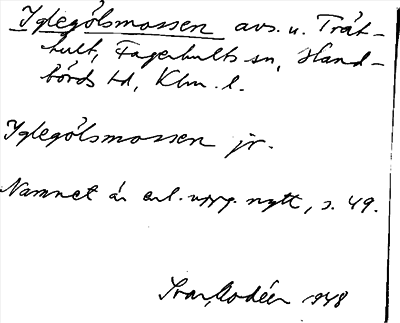 Iglegölsmossen avs. u. Trät-
hult, Fagerhults sn, Hand-
börds hd, Klm. l.
Iglegölsmossen jr.
Namnet är enl. uppg. nytt, s. 49.
Ivar Modéer 1948